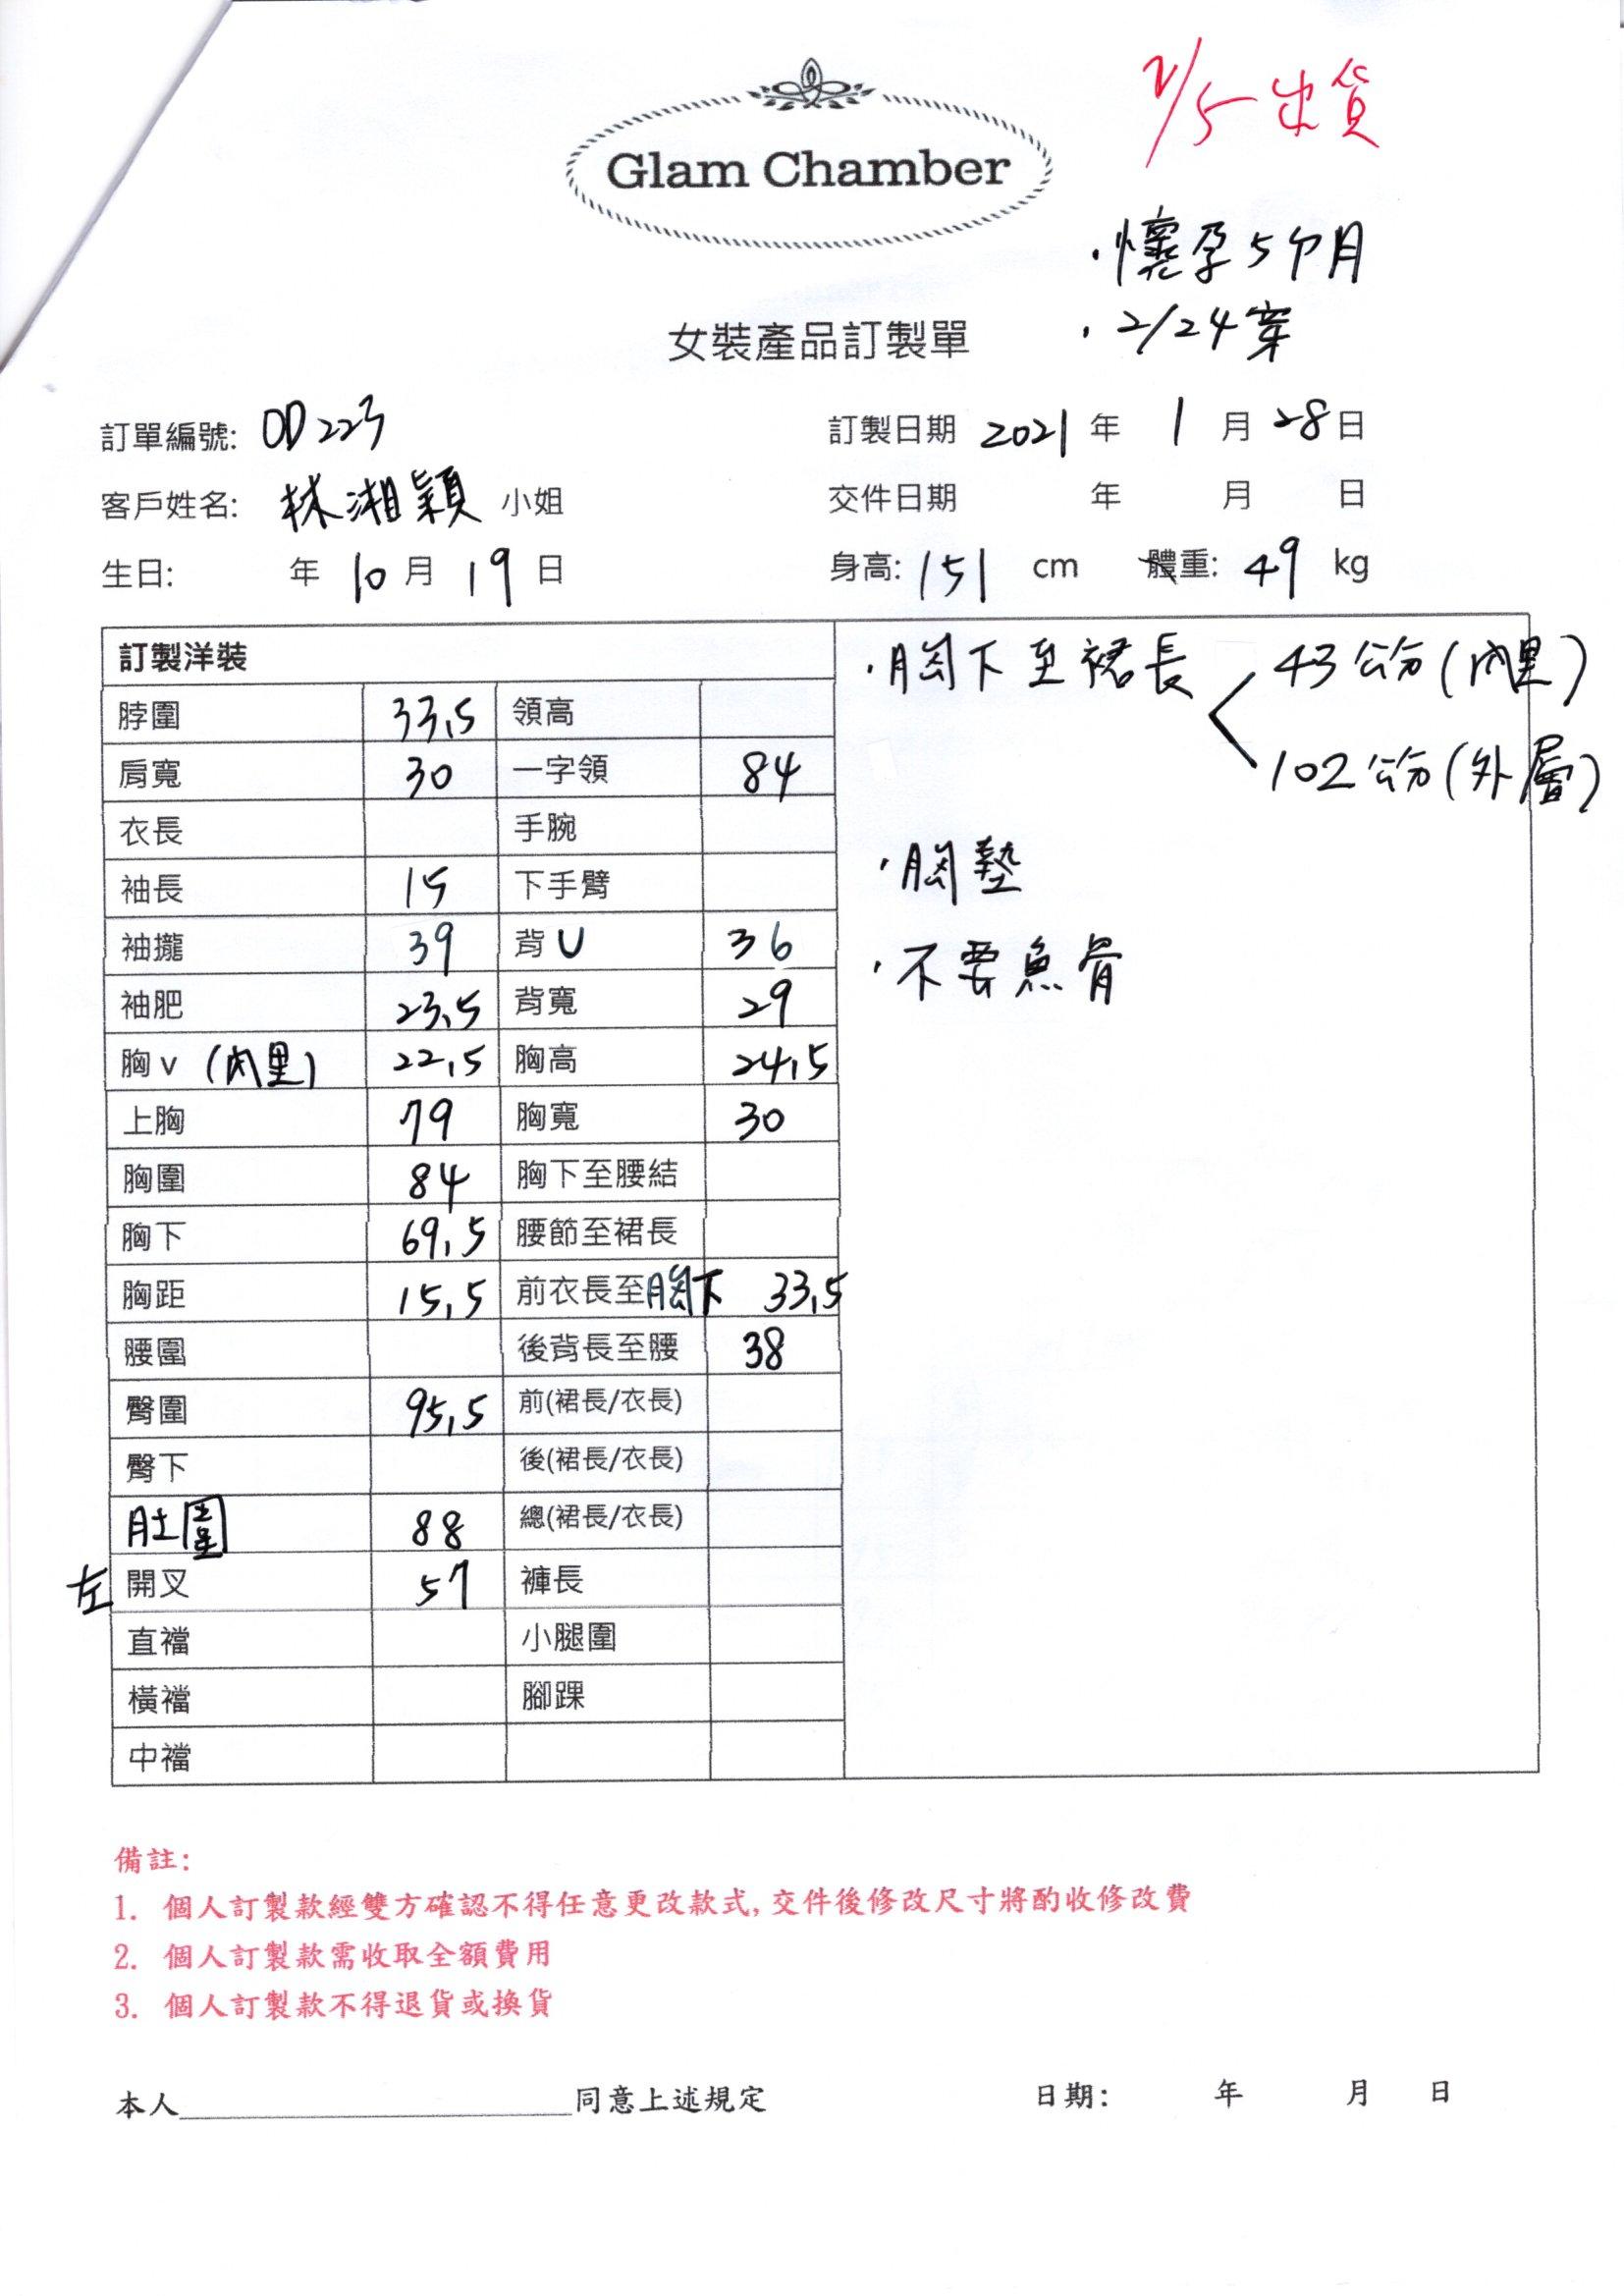 2/5出貨
Glam Chamber
・懷孕5個月
・2/24穿
女裝產品訂製單
訂單編號: OD223 訂製日期 2021 年 1 月 28 日
客戶姓名: 林湘穎 小姐 交件日期 年 月 日
生日: 年 10 月 19 日 身高: 151 cm 體重: 49 kg
訂製洋裝
脖圍 33.5 領高
肩寬 30 一字領 84
衣長 手腕
袖長 15 下手臂
袖攏 39 背U 36
袖肥 23.5 背寬 29
胸v (內里) 22.5 胸高 24.5
上胸 79 胸寬 30
胸圍 84 胸下至腰結
胸下 69.5 腰節至裙長
胸距 15.5 前衣長至胸下 33.5
腰圍 後背長至腰 38
臀圍 95.5 前(裙長/衣長)
臀下 後(裙長/衣長)
肚圍 88 總(裙長/衣長)
左 開叉 57 褲長
直襠 小腿圍
橫襠 腳踝
中襠
・胸下至裙長 43公分(內里)
102公分(外層)
・胸墊
・不要魚骨
備註:
1. 個人訂製款經雙方確認不得任意更改款式,交件後修改尺寸將酌收修改費
2. 個人訂製款需收取全額費用
3. 個人訂製款不得退貨或換貨
本人 同意上述規定 日期: 年 月 日